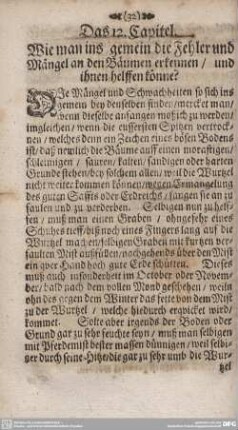 (22)
Das 12. Capitel.
Wie man ins gemein die Fehler und
Mängel an den Bäumen erkennen / und
ihnen helffen könne?
DIe Mängel und Schwachheiten so sich ins
gemein bey denselben finden / mercket man /
wenn dieselbe anfangen mosicht zu werden /
imgleichen / wenn die eussersten Spitzen vertrock-
nen / welches denn ein Zeichen eines bösen Bodens
ist / daß nemlich die Bäume auff einen
schleimigen / sauren / kalten / sandigen oder harten
Grunde stehen / bey solchem allen / weil die Wurtzel
nicht weiter kommen können / wegen Ermangelung
des guten Saffts oder Erdreichs / fangen sie an zu
faulen und zu verderben. Selbigen nun zu helf-
fen / muß man einen Graben / ohngefehr eines
Schuhes tieff / biß noch eines Fingers lang auf die
Wurtzel machen / selbigen Graben mit kurtzen ver-
faulten Mist außfüllen / nachgehends über den Mist
ein qver Hand hoch gute Erde schütten. Dieses
muß auch insonderheit im October oder Novem-
ber / bald nach dem vollen Mond geschehen / weiln
ohn des gegen dem Winter das fette von dem Mist
zu der Wurtzel / welche hiedurch erqvicket wird /
kommet. Solte aber irgends der Boden oder
Grund gar zu sehr feuchte seyn / muß man selbigen
mit Pferdemist bester massen düningen / weil selbi-
ger durch seine Hitze / die gar zu sehr umb die Wur-
tzel